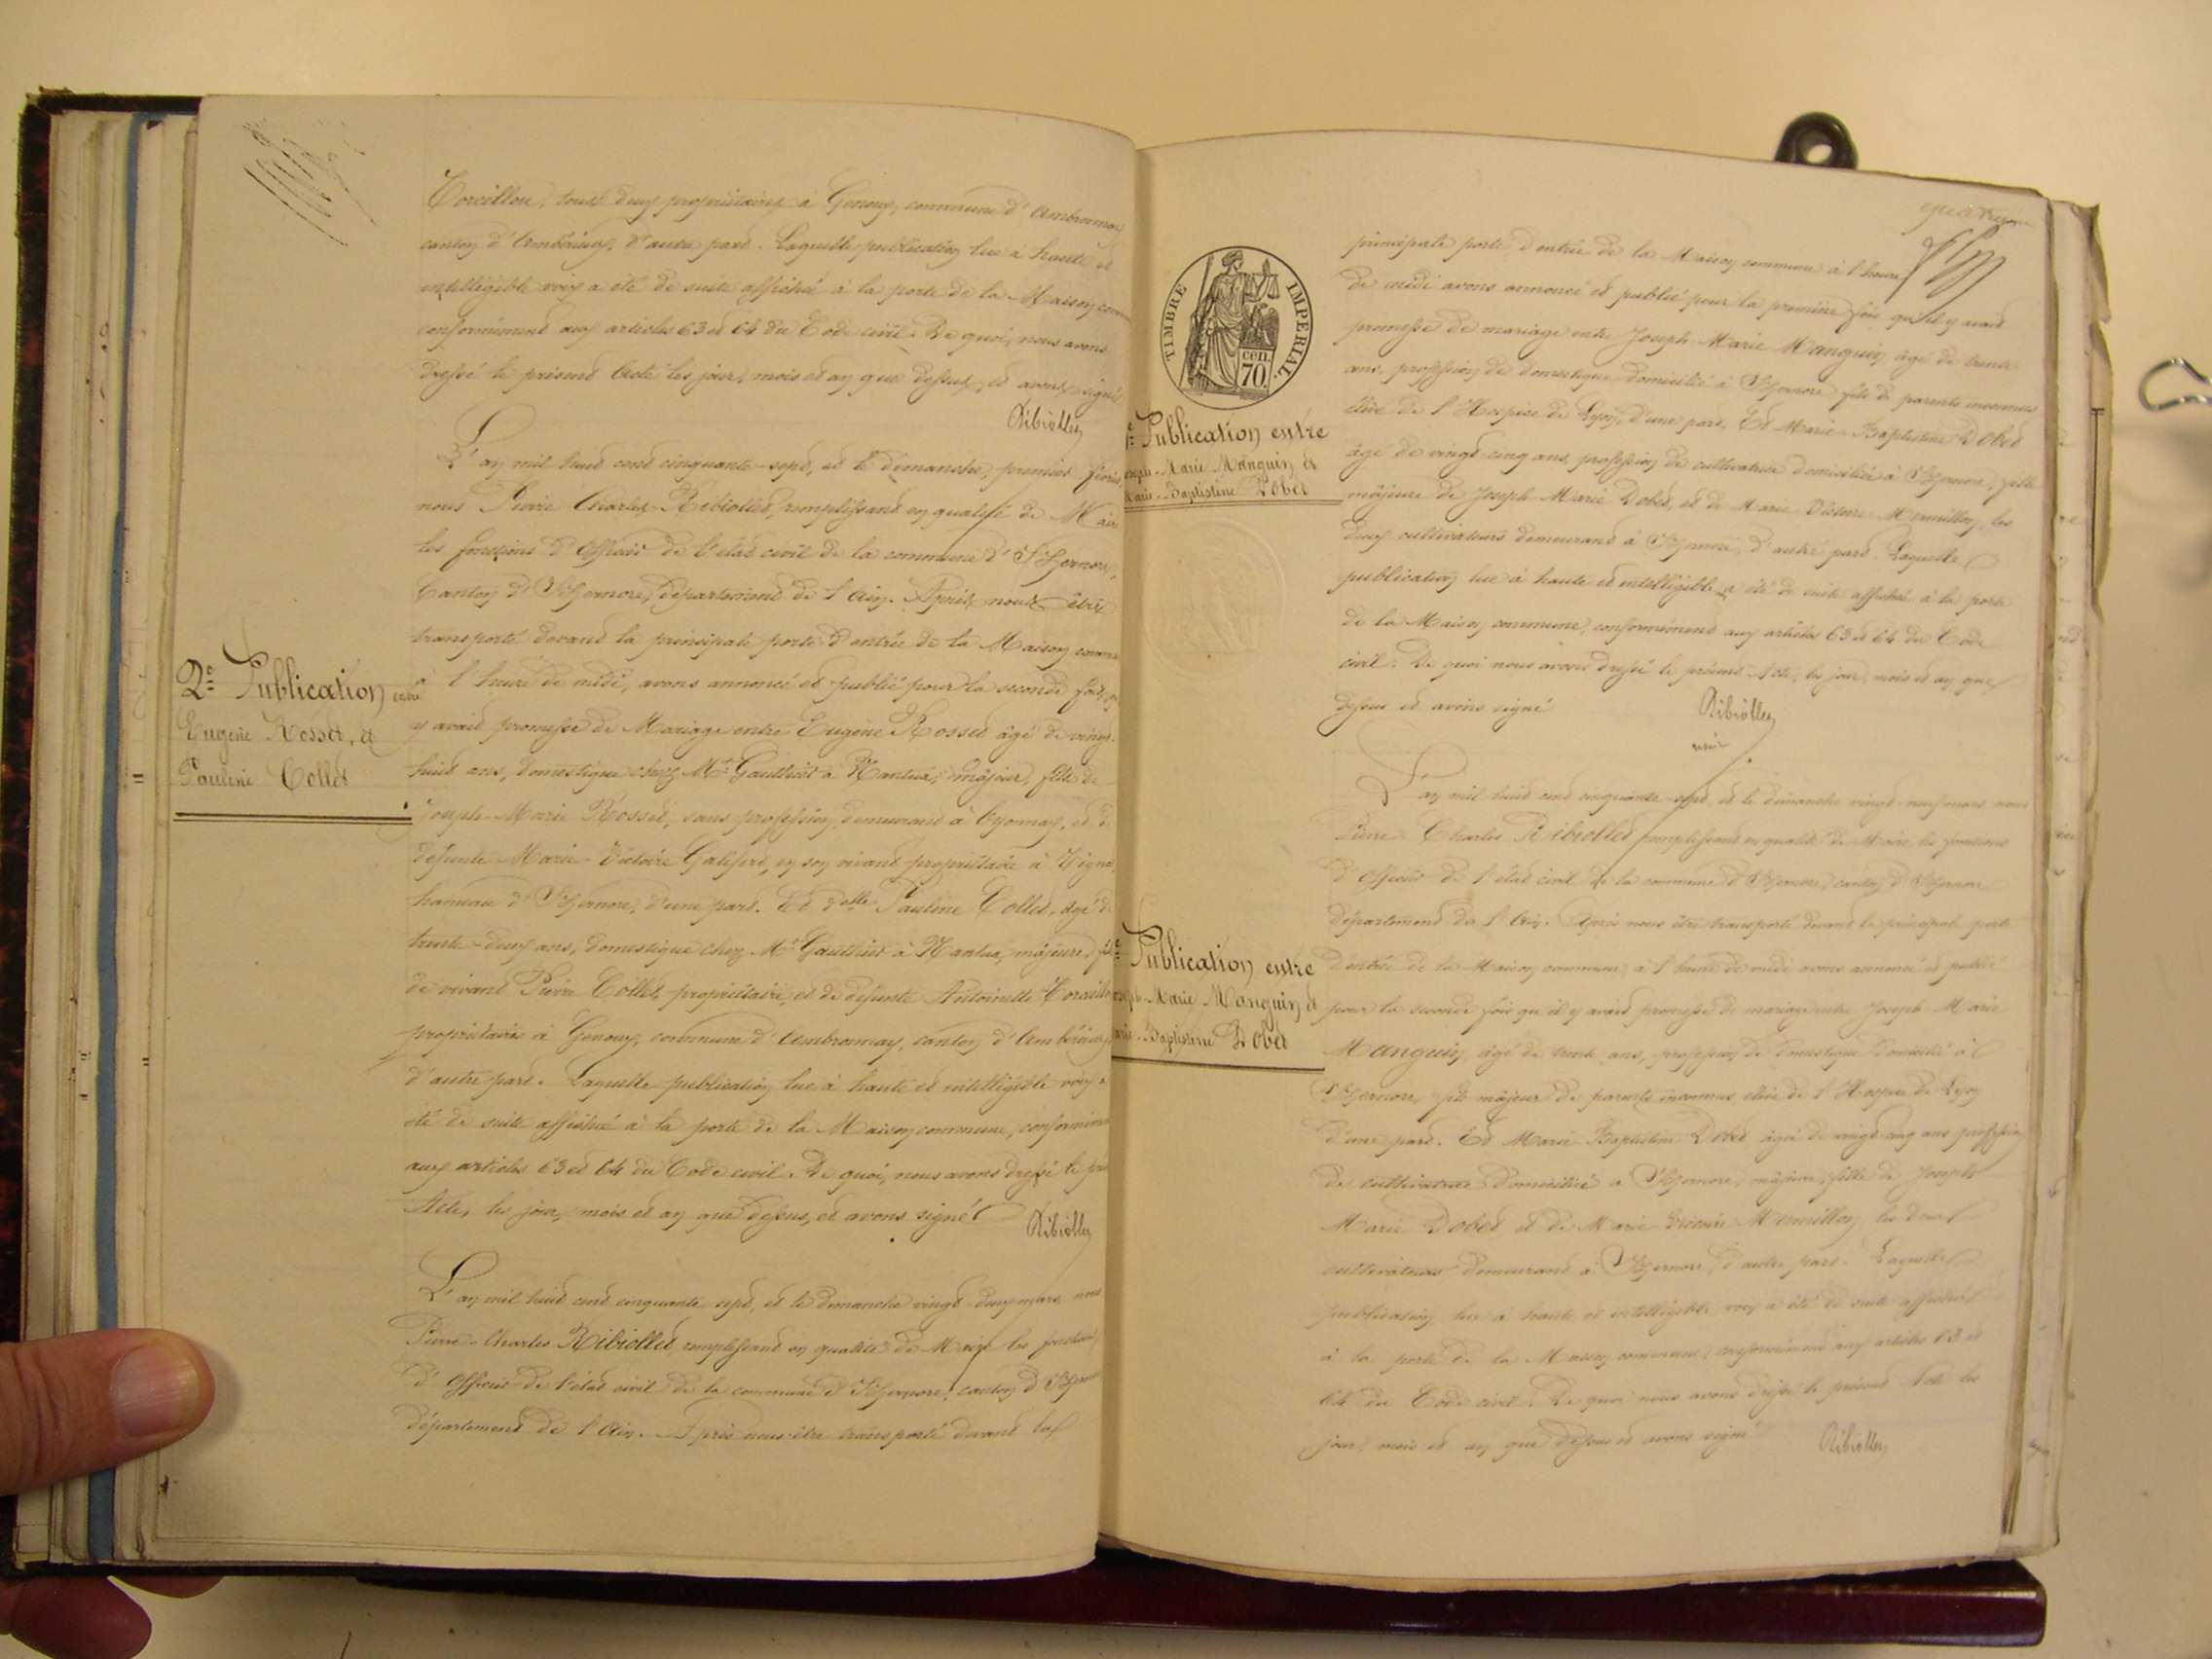 Torcillon, tous deux propriétaires à Genoux, commune d'Ambronnay
canton d'Ambérieux, d'autre part. Laquelle publication lue à haute et
intelligible voix a été de suite affichée à la porte de la Maison
conformément aux articles 63 et 64 du Code civil. De quoi, nous avons
dressé le présent Acte les jour, mois et an que dessus, et avons signé
Ribiollet
L'an mil huit cent cinquante-sept, et le dimanche, premier
nous Pierre Charles Ribiollet, remplissant en qualité de Maire
les fonctions d'Officier de l'état civil de la commune d'Izernore,
Canton d'Izernore, département de l'Ain. Après nous être
transporté devant la principale porte d'entrée de la Maison
à l'heure de midi, avons annoncé et publié pour la seconde fois
y avait promesse de Mariage entre Eugène Rosset âgé de vingt-
huit ans, domestique chez Mr Gauthier à Nantua, majeur, fils de
Joseph-Marie Rosset, sans profession demeurant à Oyonnax, et de
défunte Marie-Victoire, en son vivant propriétaire à
hameau d'Izernore, d'une part. Et delle Pauline Collet, âgé de
trente-deux ans, domestique chez Mr Gauthier à Nantua, majeure,
de vivant Pierre Collet, propriétaire, et de défunte Antoinette Torcillon
propriétaires à Genoux, commune d'Ambronnay, canton d'Ambérieux,
d'autre part. Laquelle publication lue à haute et intelligible voix a
été de suite affichée à la porte de la Maison commune, conformément
aux articles 63 et 64 du Code civil. De quoi, nous avons dressé le
Acte, les jour, mois et an que dessus, et avons signé
Ribiollet
L'an mil huit cent cinquante sept, et le dimanche vingt-deux mars, nous
Pierre-Charles Ribiollet remplissant en qualité de Maire les fonctions
d'Officier de l'état civil de la commune d'Izernore, canton d'Izernore
département de l'Ain. Après nous être transporté devant la
2e Publication entre
Eugène Rosset, et
Pauline Collet
TIMBRE IMPERIAL.
cen.
70.
Publication entre
Joseph-Marie Manguin et
Marie-Baptistine Dobet
Publication entre
Joseph-Marie Manguin et
Marie-Baptistine Dobet
principale porte d'entrée de la Maison commune à l'heure
de midi avons annoncé et publié pour la première fois qu'il y avait
promesse de mariage entre Joseph-Marie Manguin âgé de trente
ans, profession de domestique domicilié à Izernore fils de parents inconnus
élève de l'Hospice de Lyon, d'une part. Et Marie-Baptistine Dobet
âgé de vingt-cinq ans, profession de cultivatrice domiciliée à Izernore, fille
majeure de Joseph-Marie Dobet, et de Marie-Victoire Mermillon, les
deux cultivateurs demeurant à Izernore, d'autre part. Laquelle
publication lue à haute et intelligible a été de suite affichée à la porte
de la Maison commune, conformément aux articles 63 et 64 du Code
civil. De quoi nous avons dressé le présent Acte, les jour, mois et an que
dessus et avons signé
Ribiollet
L'an mil huit cent cinquante-sept, et le dimanche vingt-neuf mars, nous
Pierre Charles Ribiollet remplissant en qualité de Maire les fonctions
d'Officier de l'état civil de la commune d'Izernore, canton d'Izernore
département de l'Ain. Après nous être transporté devant la principale porte
d'entrée de la Maison commune, à l'heure de midi avons annoncé et publié
pour la seconde fois qu'il y avait promesse de mariage entre Joseph-Marie
Manguin, âgé de trente ans, profession de domestique domicilié à
Izernore, fils majeur de parents inconnus élève de l'Hospice de Lyon
d'une part. Et Marie Baptistine Dobet âgée de vingt-cinq ans profession
de cultivatrice domiciliée à Izernore, majeure, fille de Joseph
Marie Dobet, et de Marie-Victoire Mermillon, les deux
cultivateurs demeurant à Izernore, d'autre part. Laquelle
publication lue à haute et intelligible voix a été de suite affichée
à la porte de la Maison commune, conformément aux articles 63 et
64 du Code civil. De quoi nous avons dressé le présent Acte les
jour, mois et an que dessus et avons signé
Ribiollet